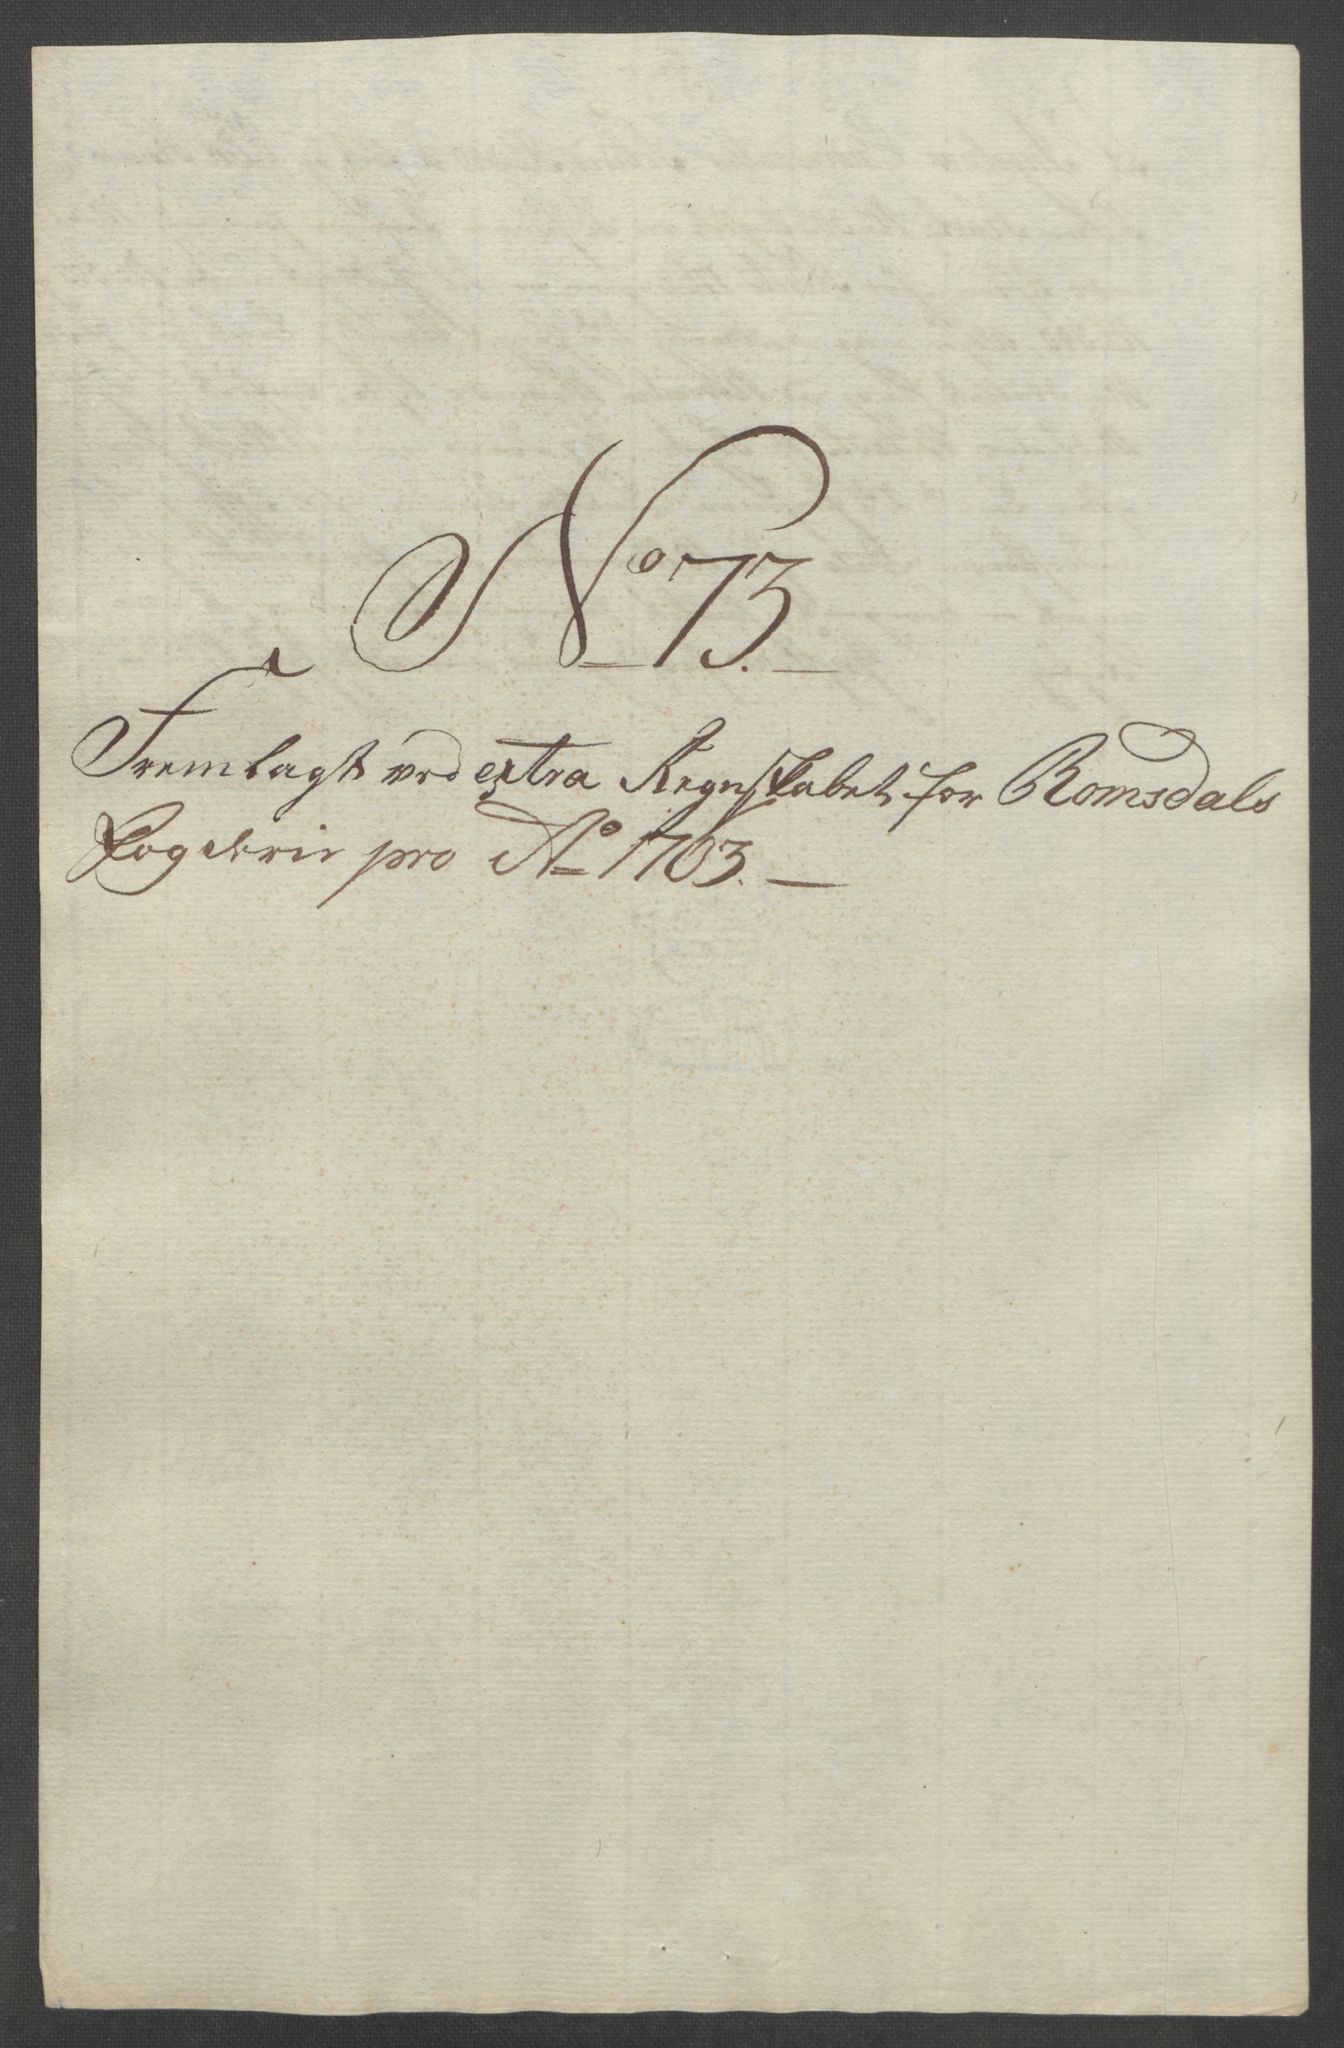 No 73.
Fremlagt ved extra Regnskabet for Romsdals
Fogderie pro Ao 1763.